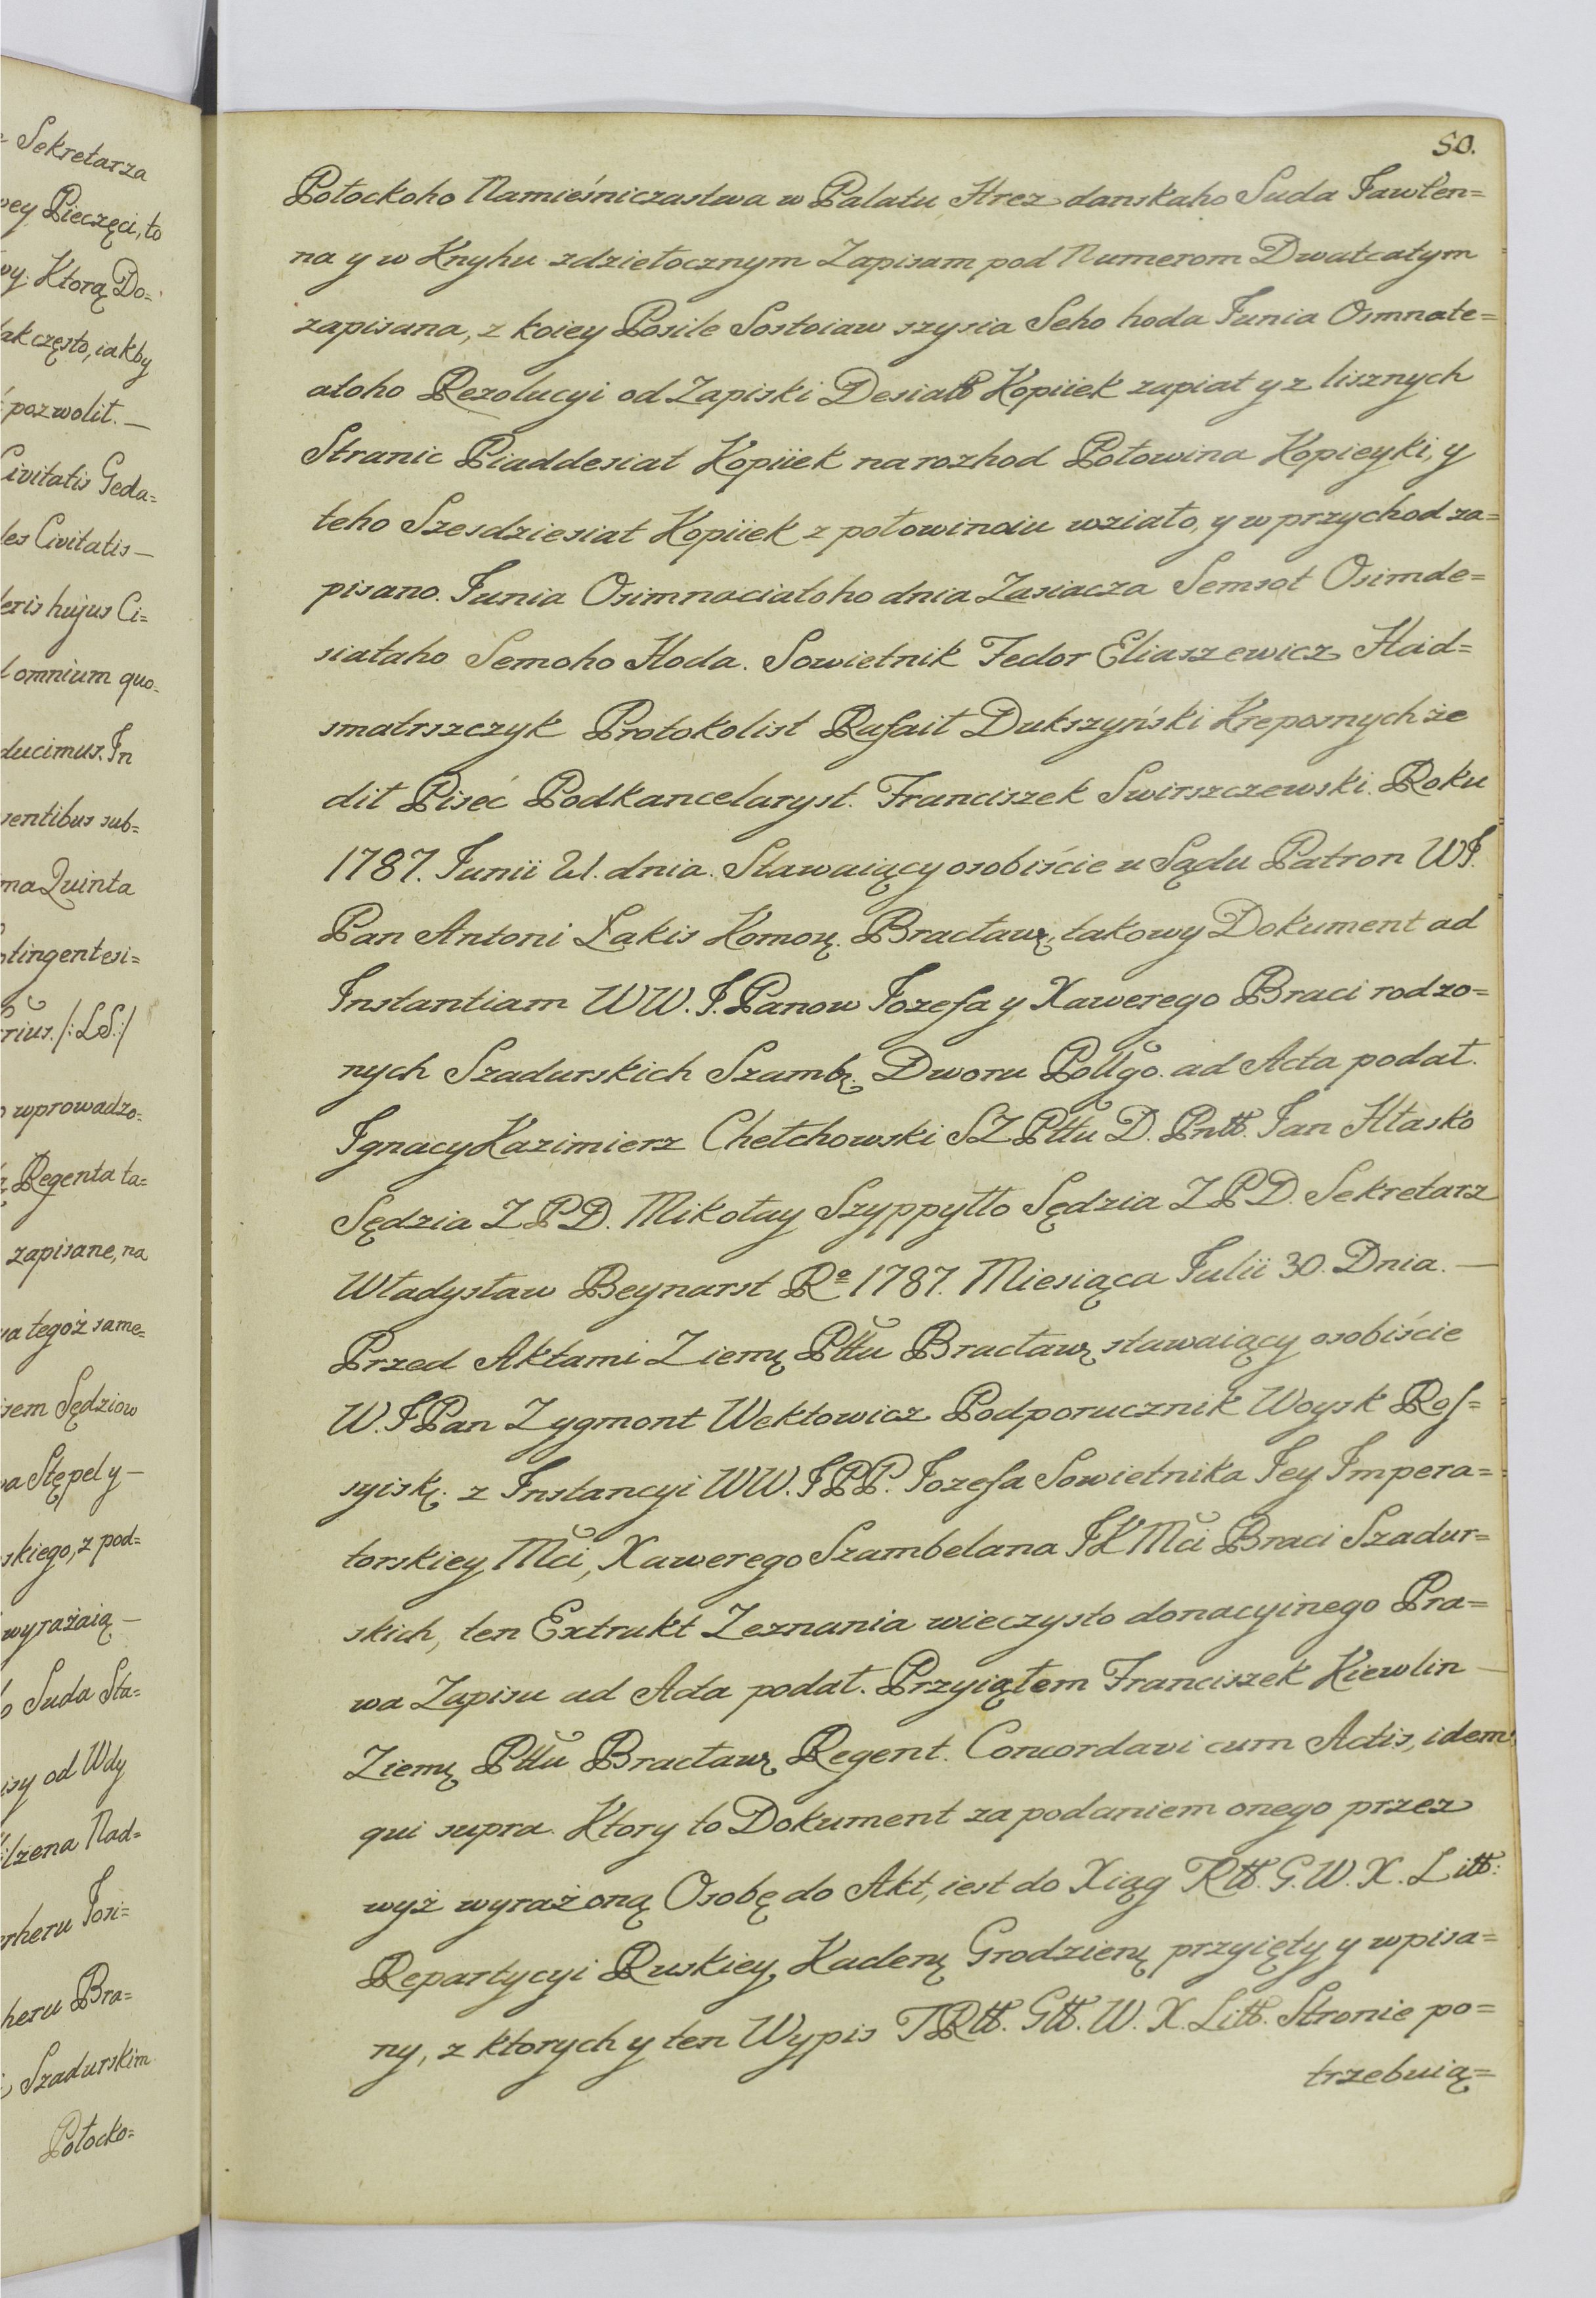 = Sekretarza
wey Pieczęci, to
wy. Ktorą Do=
tak często, iakby
pozwolit. —
Civitatis Geda=
les Civitatis —
teris hujus Ci=
omnium quo=
ducimus. In
sentibus sub=
ma Quinta
tingentesi=
rius. /: LS :/
wprowadzo=
Regenta ta=
zapisane, na
wa tegoż same=
isem Sędziow
wa Stępel y —
skiego, z pod=
wyrażaią —
o Suda Sta=
isy od Wdy
ilzena Nad=
erheru Iosi=
heru Bra=
Szadurskim
Połocko=
50.
Połockoho Namieśniczastwa w Palatu Hrez danskaho Suda Iawłen=
na y w Knyhu zdziełocznym Zapisam pod Numerom Dwatcatym
zapisana, z koiey Posile Sostoiaw szysia Seho hoda Iunia Osmnate=
atoho Rezolucyi od Zapiski Desiatt Kopiiek zapiat y z lisznych
Stranic Piaddesiat Kopiiek na rozhod Połowina Kopieyki, y
teho Szesdziesiat Kopiiek z połowinoiu wziato, y w przychod za=
pisano. Iunia Osimnaciatoho dnia Zasiacza Semsot Osimde=
siataho Semoho Hoda. Sowietnik Fedor Eliaszewicz Had=
smatrszczyk Protokolist Rafait Dukszyński Kreposnych że
dit Piseć Podkancelaryst. Franciszek Swirszczewski. Roku
1787. Iunii 21. dnia. Stawaiący osobiście u Sądu Patron WJ.
Pan Antoni Łakis Komorͺ. Bracławͺ, takowy Dokument ad
Instantiam WW. J. Panow Iozefa y Xawerego Braci rodzo=
nych Szadurskich Szambͺ. Dworu Pollgo. ad Acta podał.
Ignacy Kazimierz Chełchowski SZ Pttu D. Pntt. Ian Hłasko
Sędzia Z P D. Mikołay Szyppyłło Sędzia Z P D. Sekretarz
Władysław Beynarst Rº 1787. Miesiąca Iulii 30. Dnia. —
Przed Aktami Ziemͺ Pttu Bracławͺ stawaiący osobiście
W. J Pan Zygmont Wektowicz Podporucznik Woysk Ros=
syiskͺ. z Instancyi WW. J P P. Iozefa Sowietnika Iey Impera=
torskiey Mci, Xawerego Szambelana J K Mci Braci Szadur=
skich, ten Extrukt Zeznania wieczysto donacyinego Pra=
wa Zapisu ad Acta podał. Przyiąłem Franciszek Kiewlin —
Ziemͺ Pttu Bracławͺ Regent. Concordavi cum Actis, idem
qui supra. Ktory to Dokument za podaniem onego przez
wyż wyrażoną Osobę do Akt, iest do Xiąg Rtt. G. W. X. Litt:
Repartycyi Ruskiey, Kadenͺ Grodzienͺ przyięty y wpisa=
ny, z ktorych y ten Wypis TRtt. Gtt. W. X. Litt. Stronie po=
trzebuią=